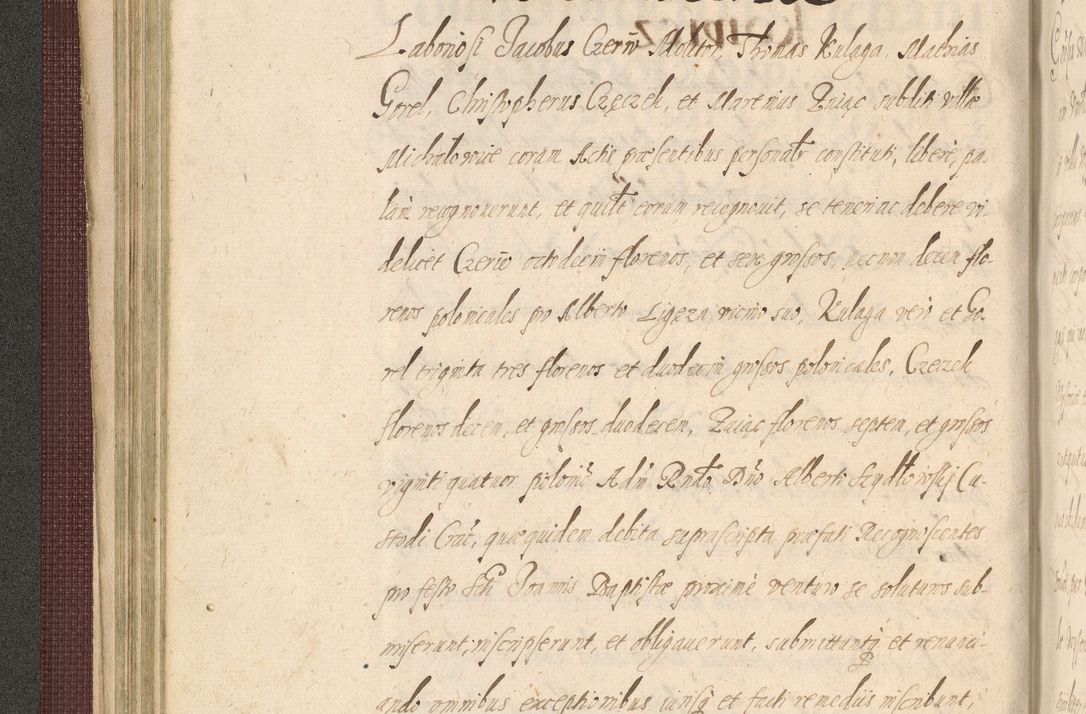 Laboriosi Jacobus Czerw Molitor, Thomas Kulaga, Mathias
Gorel, Christopherus Częczek, et Martinus Zaiąc subditi villæ
Michalowice coram Actis præsentibus personalr constituti, libere, pa-
lam recognoverunt, et quilt eorum recognovit, se teneri ac debere vi-
delicet Czerw octodecim florenos, et sex grossos, necnon decem flo-
renos polonicales pro Alberto Ligęza vicino suo, Kulaga vero et Go-
rel triginta tres florenos et duodecim grossos polonicales, Czeczek
florenos decem, et grossos duodecem, Zaiąc florenos septem, et grossos
viginti quatuor polonic Adm Rndo Dno Alberto Szydłowskij Cu-
stodi Crac, quæ quidem debita suprascripta præfati Recognoscentes
pro festo Sti Joannis Baptistæ proxime venturo se soluturos sub-
miserunt, inscripserunt, et obligaverunt, submittuntq et renunci-
ando omnibus exceptionibus iurisq et facti remediis inscribunt,